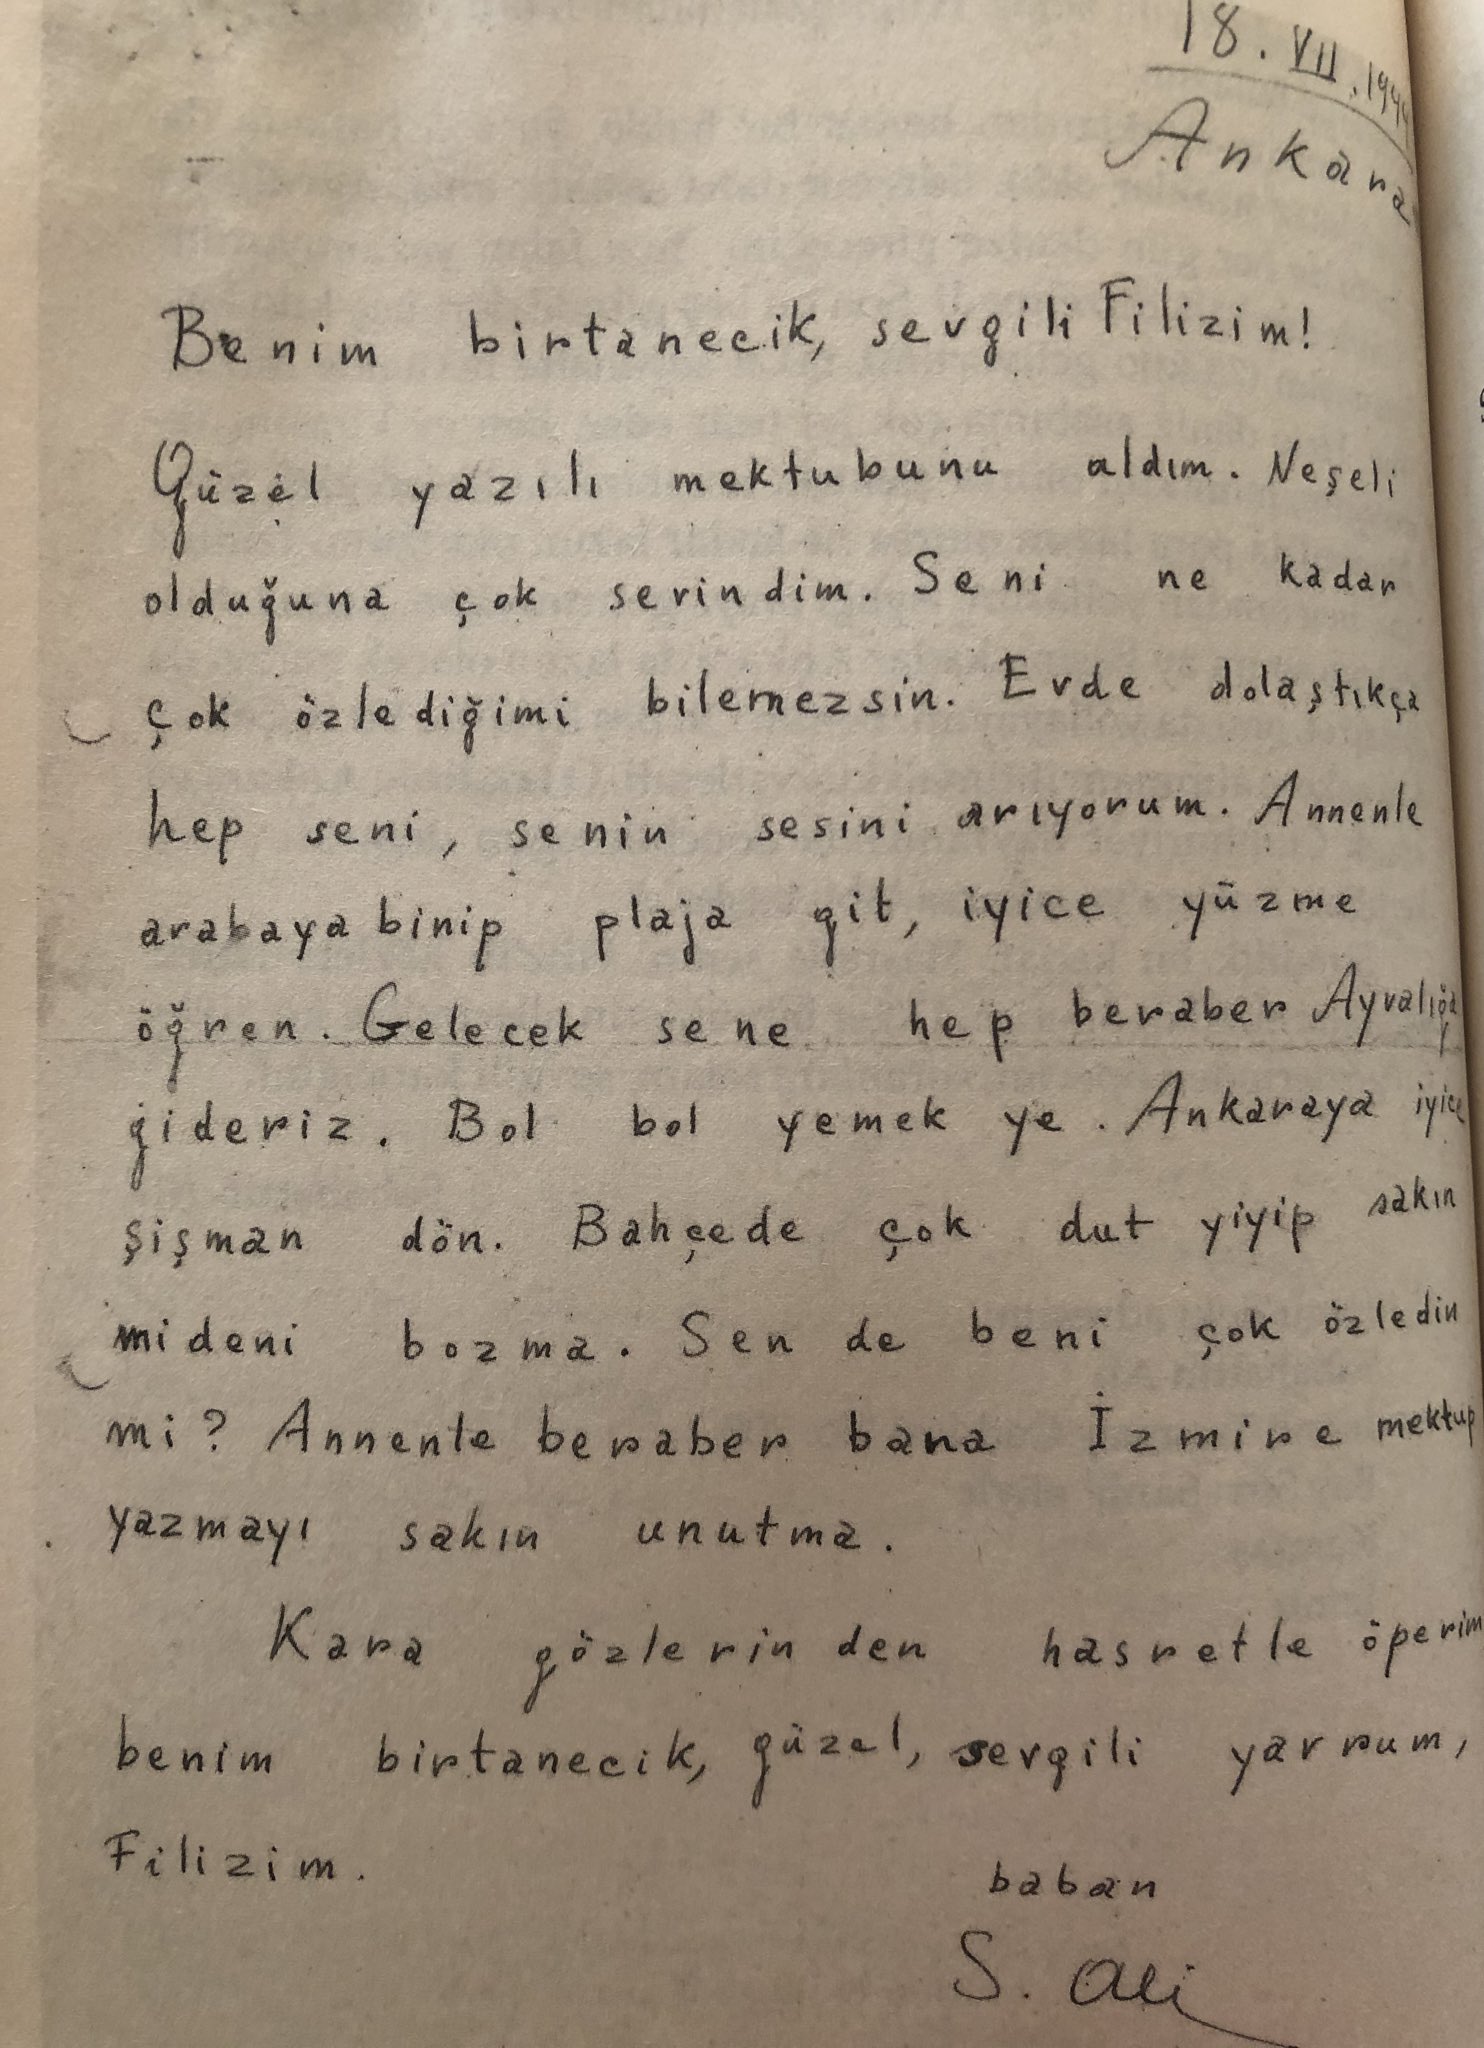 18.VII.1944
Ankara
Benim birtanecik, sevgili Filizim!
Güzel yazılı mektubunu aldım. Neşeli
olduğuna çok sevindim. Seni ne kadar
çok özlediğimi bilemezsin. Evde dolaştıkça
hep seni, senin sesini arıyorum. Annenle
arabaya binip plaja git, iyice yüzme
öğren. Gelecek sene hep beraber Ayvalığa
gideriz. Bol bol yemek ye. Ankaraya iyice
şişman dön. Bahçede çok dut yiyip sakın
mideni bozma. Sen de beni çok özledin
mi? Annenle beraber bana İzmire mektup
yazmayı sakın unutma.
Kara gözlerinden hasretle öperim
benim birtanecik, güzel, sevgili yavrum,
Filizim.
baban
S. Ali